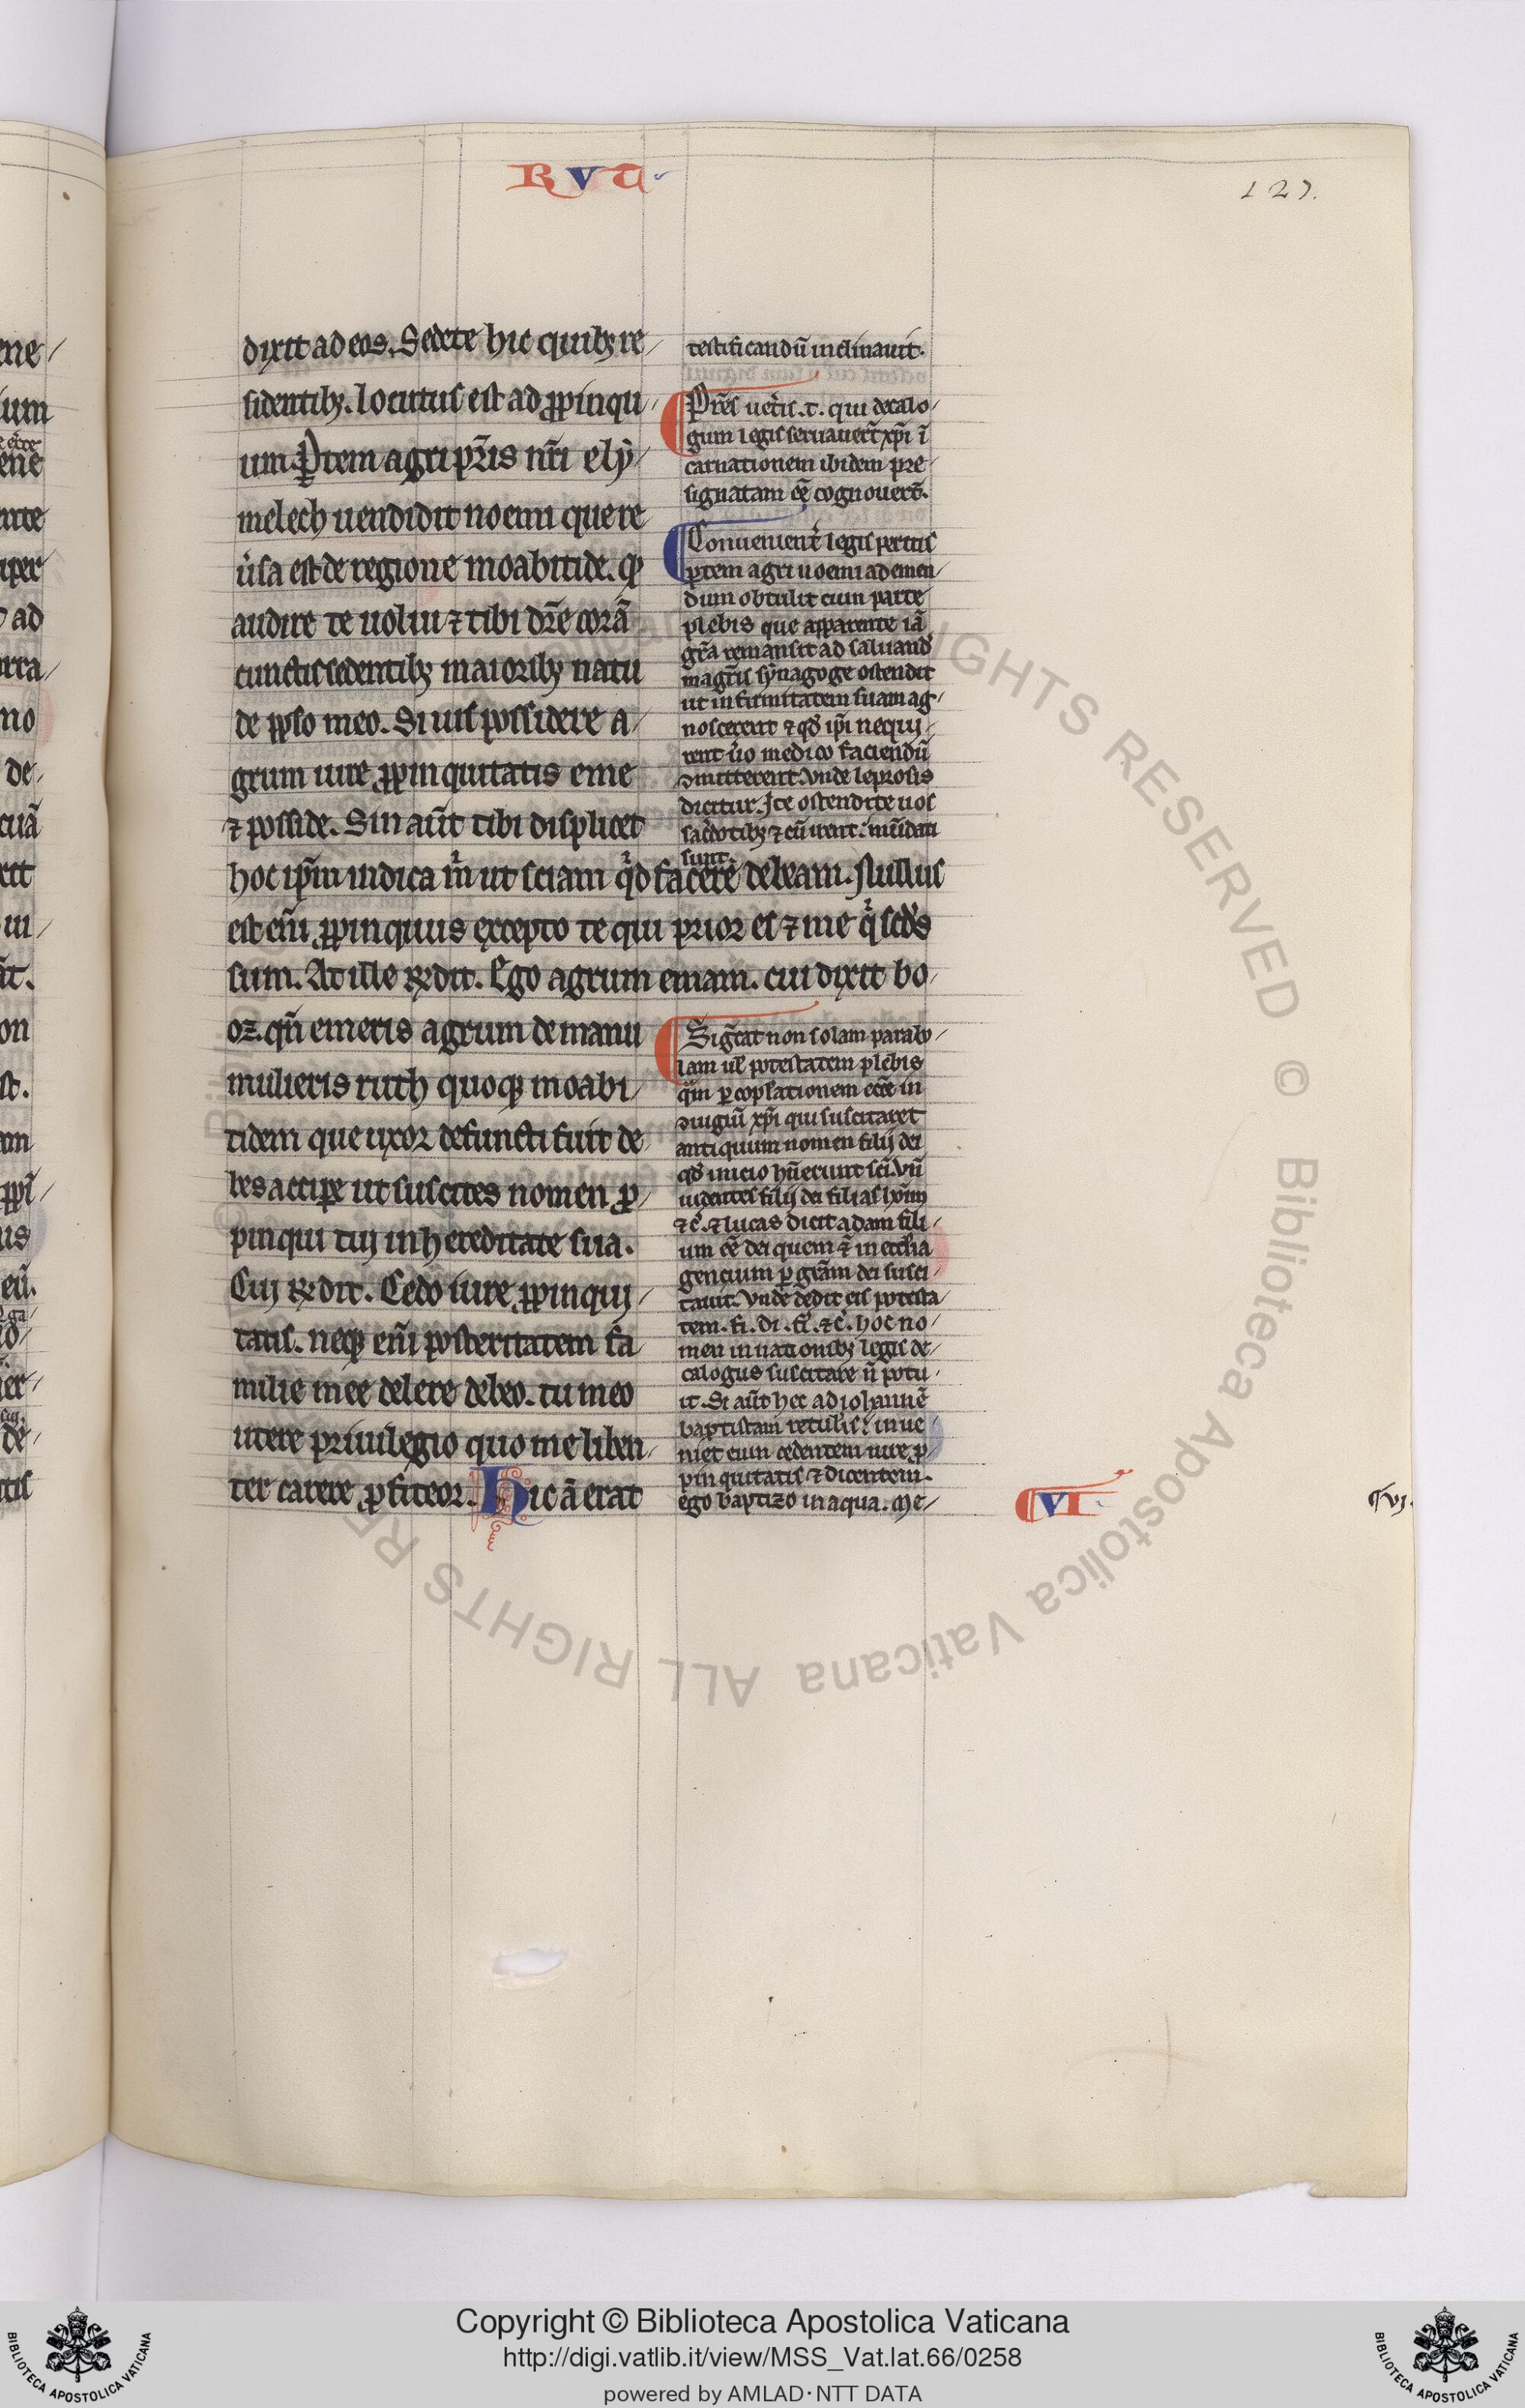 RVT
127.
dixit ad eos. Sedete hic quibꝫ re/
sidentibꝫ. locutus est ad ꝓpinqu/
um. Ꝑtem agri pr̃is nr̃i ely/
melech uendidit noemi que re
ũsa est de regione moabitide. qḋ
audire te uolui ⁊ tibi dr̃e corã
cunctis sedentibꝫ maioribꝫ natu
de pp̃lo meo. Si uis possidere a/
grum iure ꝓpinquitatis eme
⁊ posside. Sin aũt tibi displicet
hoc ip̃m indica m̃ ut sciam qͥd facere debeam. Nullus
est em̃ ꝓpinquus excepto te qui prior es ⁊ me qͥ scd̃s
sum. At ille r̃ndit. Ego agrum emam. cui dixit bo/
oz. qñ emeris agrum de manu
mulieris ruth quoqꝫ moabi/
tidem que uxor defuncti fuit de
bes accipe ut suscites nomen ꝓ/
pinqui tui in hereditate sua.
Cui r̃ndit. Cedo iure ꝓpinqui/
tatis. neqꝫ em̃ posteritatem fa/
milie mee delere debeo. tu meo
utere priuilegio quo me liben/
ter carere ꝓfiteor. Hic ã erat
testificandũ inclinauit.
Pr̃es uet̃is .t. qui decalo/
gum legis seruauer̃t xp̃i ĩ
carnationem ibidem pre/
signatam ee᷎ cognouer̃t.
Conuenient̃ legis peritus
ꝑtem agri noemi ad emen/
dum obtulit cum parte
plebis que apparente iã
gr̃a remansit ad saluand᷎
magr̃is synagoge ostendit
ut infirmitatem suam ag/
noscerent ⁊ qd᷎ ip̃i nequi/
rent ũo medico faciendũ
ↄmitterent. Vnde leprosis
dicitur. Ite ostendite uos
sac̃dotibꝫ ⁊ cũ irent: mũdati
sunt.
Sig̃cat non solam parabo/
lam uł potestatem plebis
qm̃ ꝑ copłationem ecc̃e in
ↄiugiũ xp̃i qui suscitaret
antiquum nomen filij dei
qd᷎ inicio hũerunt sc̃i. Vñ
uidentes filij dei filias hoĩm
⁊c̃. ⁊ lucas dicit adam fili/
um ee᷎ dei quem ⁊̃ in eccl̃ia
gencium ꝑ gr̃am dei susci/
tauit. Vnde dedit eis potesta/
tem. fi. di. fi. ⁊c̃. hoc no/
men in nationibꝫ legis de/
calogus suscitare ñ potu/
it. Si aũt hec ad iohannẽ
baptistam retul̃is: inue/
niet eum cedentem iure ꝓ/
pinquitatis ⁊ dicentem.
ego baptizo in aqua. me/
VI
¶vj.
Copyright © Biblioteca Apostolica Vaticana
http://digi.vatlib.it/view/MSS_Vat.lat.66/0258
powered by AMLAD·NTT DATA